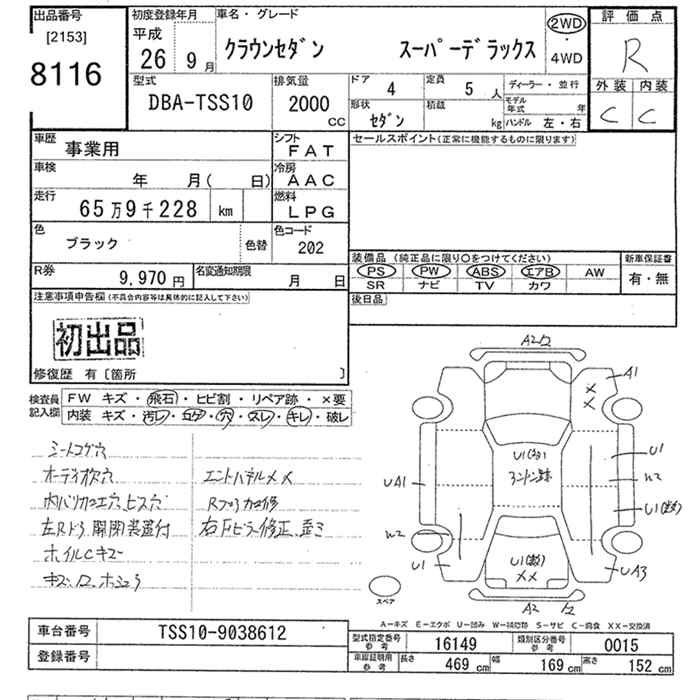 出品番号
[2153]
8116
初度登録年月
平成
26 9月
車名・グレード
クラウンセダン スーパーデラックス
2WD
・
4WD
評価点
R
外装 内装
C C
型式
DBA-TSS10
排気量
2000
CC
ドア
4
定員
5 人
ディーラー・並行
形状
セダン
積載
kg
モデル年式 年
ハンドル 左・右
車歴
事業用
シフト
FAT
車検
年 月( 日)
冷房
AAC
走行
65万9千228 km
燃料
LPG
色
ブラック
色替
色コード
202
R券
9,970円
名変通知期限
月 日
セールスポイント(正常に機能するものに限ります)
装備品 (純正品に限り○をつけてください)
新車保証書
PS PW ABS エアB AW
有・無
SR ナビ TV カワ
後日品
注意事項申告欄(不具合内容等は具体的に記入して下さい)
初出品
修復歴 有〔箇所 〕
検査員記入欄
FW キズ・飛石・ヒビ割・リペア跡・×要
内装 キズ・汚レ・コゲ・穴・スレ・キレ・破レ
シートコゲ穴
オーディオ欠穴
エンドパネルメメ
左Rドラ開閉装置付
ホイルCキズ
A2
A1
U1
W2
UA1
W2
U1
UA3
A2
××
スペア
A-キズ E-エクボ U-凹み W-補修跡 S-サビ C-腐食 XX-交換済
車台番号
TSS10-9038612
登録番号
型式指定番号
参考
16149
類別区分番号
参考
0015
車庫証明用
参考
長さ 469 cm 幅 169 cm 高さ 152 cm